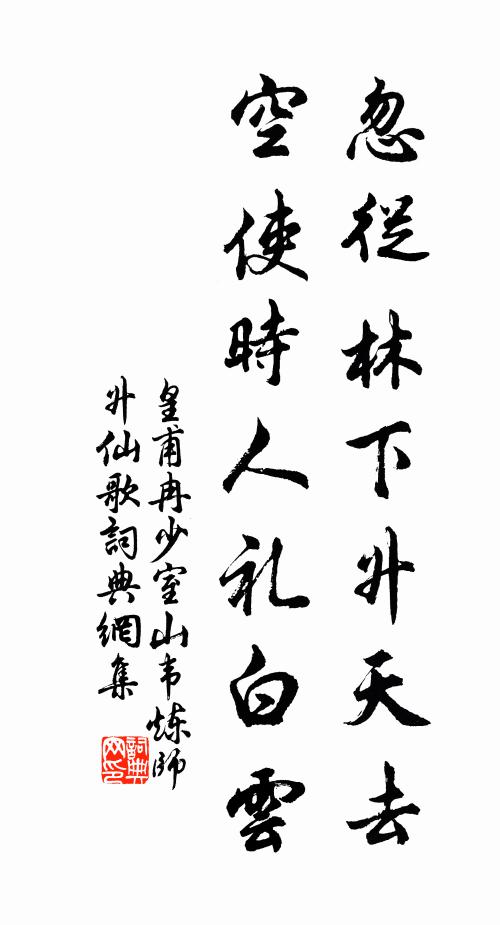 忽從林下升天去
空使時人礼白雲
皇甫冉少室山韦炼師
升仙歌詞典網集
詞典网印